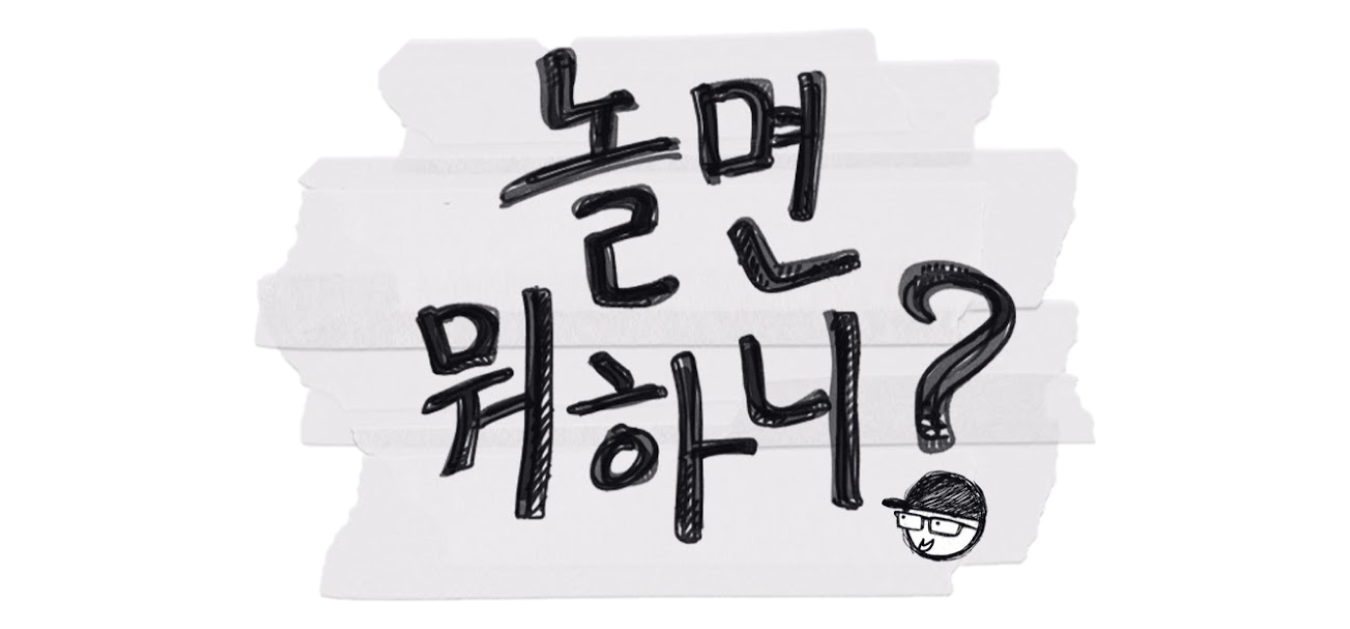 놀면
뭐하니?